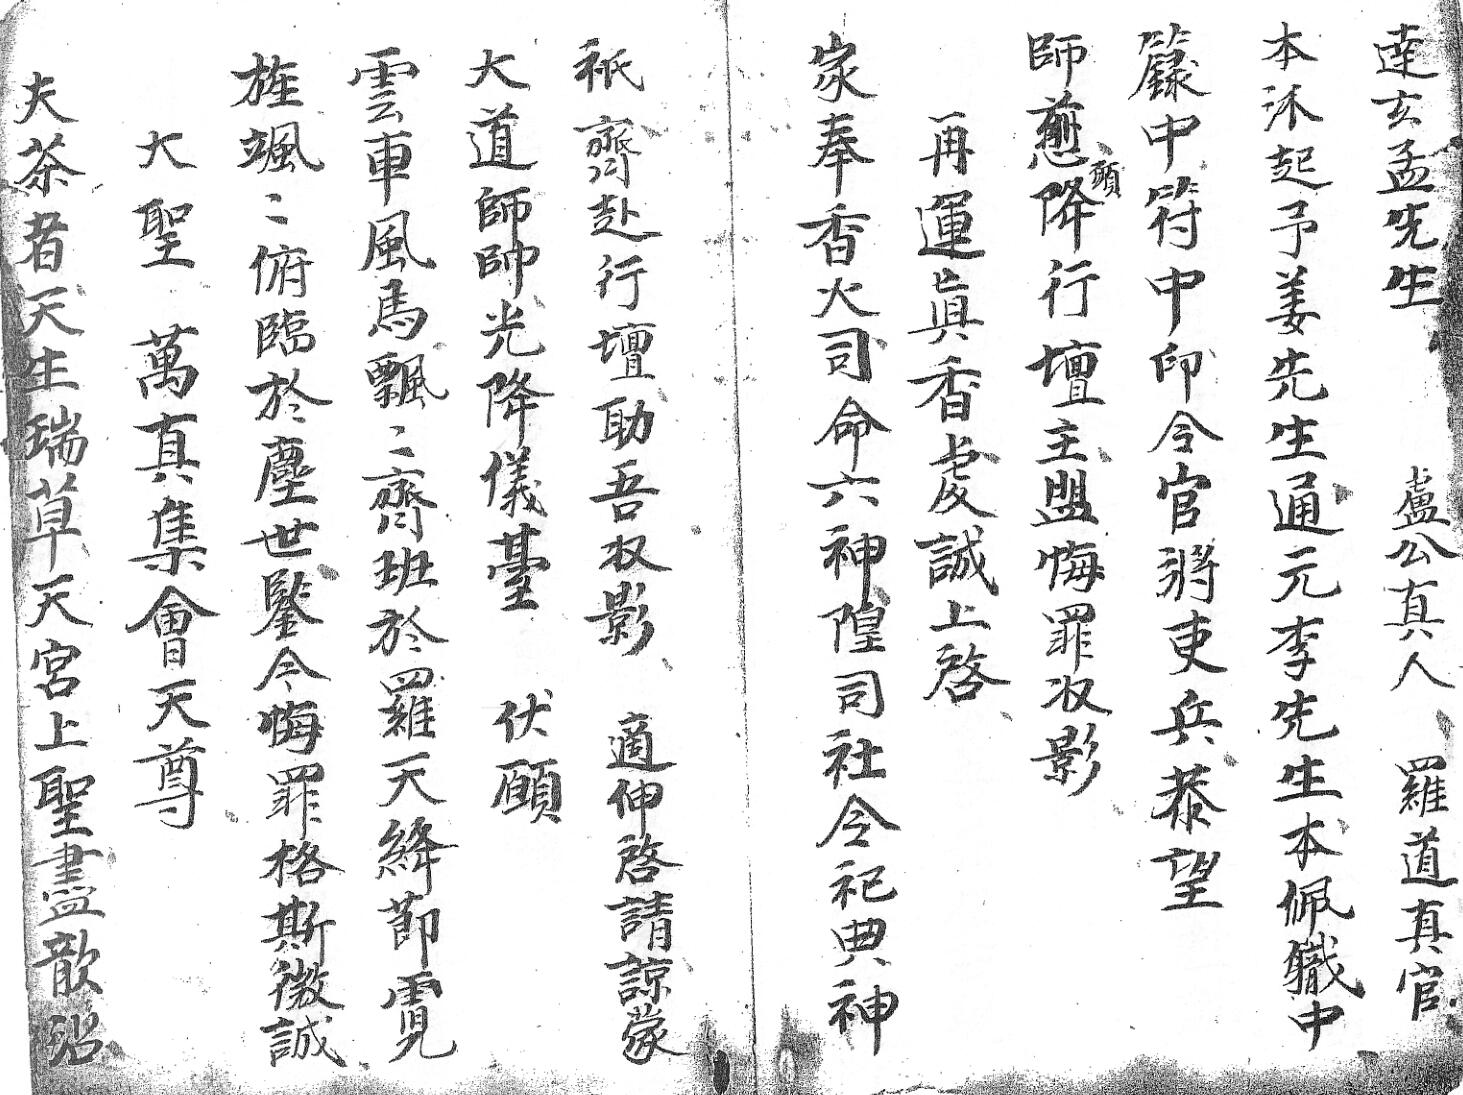 達玄孟先生　盧公真人　羅道真官
本沐起予姜先生通元李先生本佩職中
籙中符中印令官將吏兵恭望
師慈願降行壇主盟悔罪収影
再運眞香虔誠上啓
家奉香火司命六神隍司社令祀典神
祇齋赴行壇助吾収影　適伸啓請諒蒙
大道師帥光降儀臺　伏願
雲車風馬飄〻齋班於羅天絳節霓
旌颯〻俯臨於塵世鑒今悔罪格斯微誠
大聖　萬真集會天尊
夫茶者天生瑞草天宮上聖盡歆